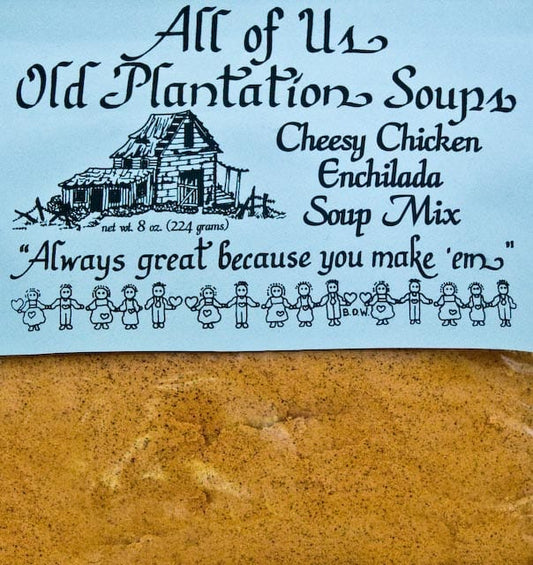 All of Us
Old Plantation Soups
Cheesy Chicken
Enchilada
Soup Mix
net wt. 8 oz. (224 grams)
"Always great because you make 'em"
B.D.W.